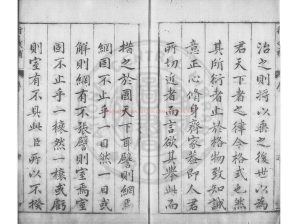 治之則將以垂之後世以為
君天下者之律令格式也然
其所行者於格物致知誠
意正心修身齊家皆卽人君
所切近者而言欲其舉此而
措之於國天下耳譬則網焉
固不止乎一目然一目或
解則網有不張譬則室焉室
固不止乎一椽然一椽或虧
則室有不具此臣所以不揆